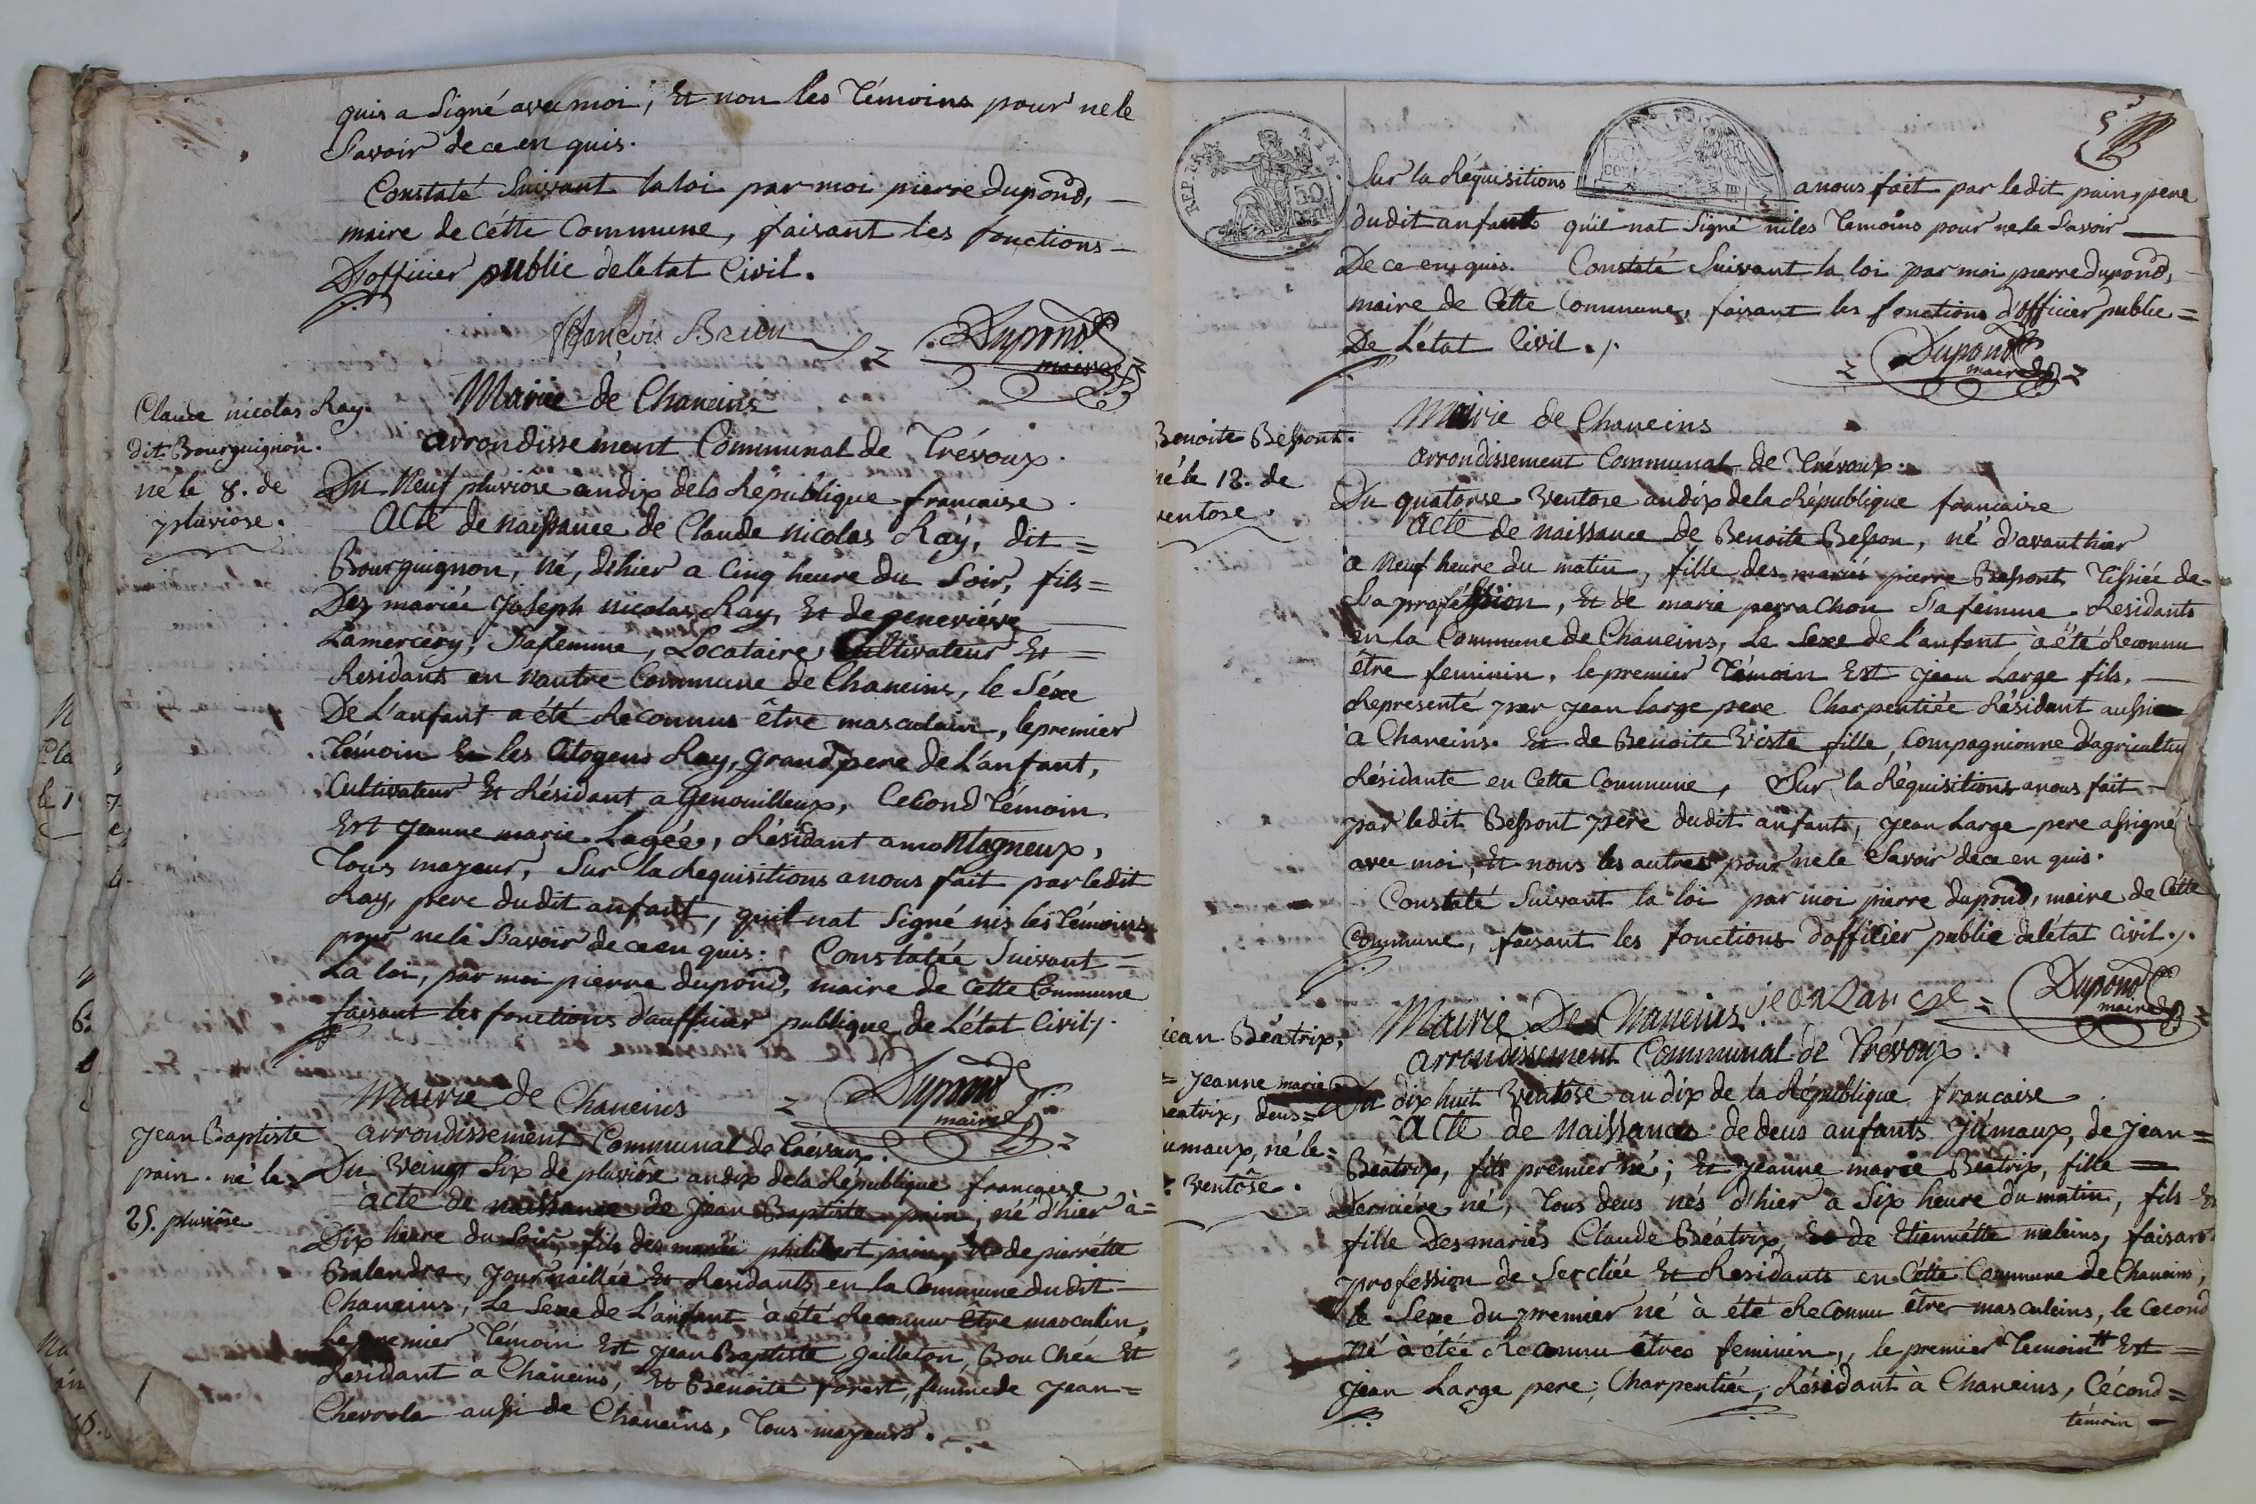 quis a Signé avec moi, Et non les Témoins pour ne le
Savoir de ce en quis.
Constaté Suivant la loi par moi pierre dupond,
maire de cétte Commune, faisant les fonctions
D'officier public de l'état Civil.
françois Brieu Dupond
maire
Claude nicolas Ray.
dit Bourguignon.
né le 8. de
pluviose.
Mairie de Chaneins
arrondissement Communal de Trévoux.
Du Neuf pluviose an dix de la République francaise
Acte de naissance de Claude nicolas Ray, dit =
Bourguignon, né, d'hier a Cinq heure du Soir, fils =
Des mariée Joseph nicolas Ray, Et de geneviéve
Lamercery, Safemme, Locataire, Cultivateur Et =
Résidant en nautre Commune de Chaneins, le Séxe
De L'anfant a été Reconnus être masculain, le premier
Témoin Est les Citoyens Ray, grand pere de L'anfant,
Cultivateur Et Résidant a genouilleux, Cecond Témoin
Est Jeanne marie Lagée, Résidant a montagneux,
Tous mayeur, Sur la Requisitions a nous fait par ledit
Ray, pere du dit anfant, qu'il nat Signé nis les Témoins
pour ne le Savoir de ce en quis. Constatée Suivant =
La loi, par moi pierre dupond, maire de Cette Commune
faisant les fonctions d'aufficier publique de L'état Civil.
Dupond
maire
Jean Baptiste
pain. né le
25. pluviôse
Mairie de Chaneins
arrondissement Communal de Trévoux.
Du Veingt Six de pluviôse an dix de la République francaise
acte de naissance de Jean Baptiste pain, né d'hier à =
Dix heure du Soir, fils des mariée philibert pain, Et de pierrétte
Balandra, Journaillée Et Residants en la Commune dudit
Chaneins, Le Sexe de L'anfant à été Reconnu Être masculin,
Le premier Témoin Est Jean Baptiste Gaillaton Bouchée Et
Residant à Chaneins, Et Benoite forest, femme de Jean =
Chevrola aussi de Chaneins, Tous mayeurs.
5
Sur la Réquisitions a nous fait par ledit pain, pere
dudit anfants qu'il nat Signé niles Temoins pour ne le Savoir
De ce en quis. Constaté Suivant la loi par moi pierre dupond,
maire de Cétte Commune, faisant les fonctions d'officier public =
De L'état Civil.
Dupond
maire
Benoite Bessont.
né le 12. de
ventose.
Mairie de Chaneins
arrondissement Communal de Trévoux.
Du quatorse Ventose an dix de la République francaise
Acte de naissance de Benoite Besson, né d'avanthier
a Neuf heure du matin, fille des mariés pierre Bessont Tissiée de
Sa proféssion, Et de marie perrachon Safemme Residants
en la Commune de Chaneins, Le Sexe de L'anfant à été Reconnu
être feminin, le premier Témoin Est Jean Large fils,
Representé par Jean large pere Charpentiée Résidant aussi
à Chaneins. Et de Benoite Viste fille, Compagnionne d'agricultu
Résidante en Cette Commune, Sur la Réquisitions a nous fait
par ledit Bessont père dudit anfants, Jean Large pere assigné
avec moi, Et nous les autres pour ne le Savoir de ce en quis.
Constaté Suivant la loi par moi pierre dupond, maire de Cétte
Commune, faisant les fonctions d'officier public de l'état Civil.
jean Large Dupond
maire
Jean Béatrix,
= Jeanne marie
eatrix, deus =
umaux, né le =
Ventôse.
Mairie De Chaneins
arrondissement Communal de Trévoux.
Du dix huit Ventôse an dix de la République francaise
Acte de Naissances de deus anfants Jumaux, de Jean =
Béatrix, fils premier né; Et Jeanne marie Béatrix, fille =
Derniére né, Tous deus nés d'hier à Six heure du matin, fils Et
fille Desmariés Claude Béatrix, Et de Etiennétte meleins, faisant
profession de Sercliée Et Residants en Cétte Commune de Chaneins,
le Sexe du premier né à été Reconnu être masculeins, le Cecond
né à étée Reconnu êtres feminin, le premier Témoin Est =
Jean Large pere, Charpentiée, Résidant à Chaneins, Cécond =
témoin